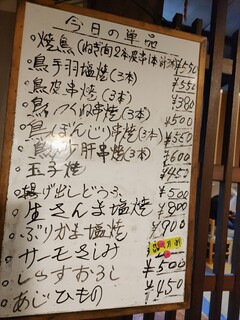 今日の単品
・焼鳥(ねぎ肉2本 ¥550
・鳥手羽塩焼(3本) ¥550
・鳥皮串焼(3本) ¥380
・鳥つくね串焼(3本) ¥500
・鳥ぼんじり串焼(3本) ¥550
・鳥砂肝串焼(3本) ¥600
・玉子焼 ¥450
・揚げ出しどうふ ¥500
・生さんま塩焼 ¥800
・ぶりかま塩焼 ¥900
・サーモンさしみ
・しらすおろし ¥500
・あじひもの ¥450